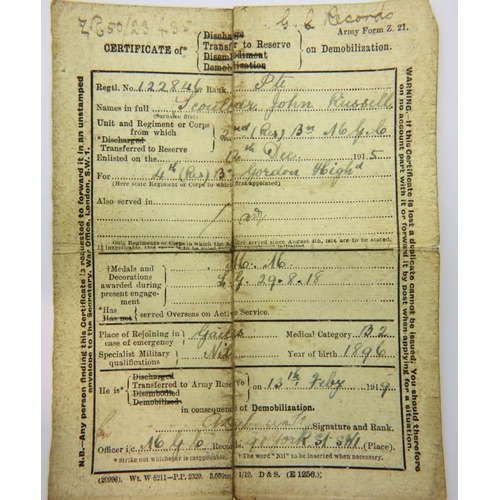 Z R 50/23435
G. C Records
Army Form Z. 21.
CERTIFICATE of*
Discharge
Transfer to Reserve
Disembodiment
Demobilization
on Demobilization.
Regtl. No. 122846 Rank Pte
Names in full Scoullar John Russell
(Surname first)
Unit and Regiment or Corps
from which
*Discharged
Transferred to Reserve
2nd (Res) Bn M.G.C
Enlisted on the 12th Dec 1915
For 4th (Res) Bn Gordon Highd
(Here state Regiment or Corps to which first appointed)
Also served in
Only Regiments or Corps in which the Soldier served since August 4th, 1914 are to be stated.
†Medals and
Decorations
awarded during
present engage-
ment
M. M.
L.G. 29.8.18
*Has
Has not
served Overseas on Active Service.
Place of Rejoining in
case of emergency
Medical Category B2
Specialist Military
qualifications
Nil
Year of birth 1896
He is*
Discharged
Transferred to Army Reserve
Disembodied
Demobilized
on 13th Feby 1919
in consequence of Demobilization.
Signature and Rank.
Officer i/c. M G C Records. York St SW1 (Place).
*Strike out whichever is inapplicable. †The word "Nil" to be inserted when necessary.
(20996). Wt. W 8211—P.P. 2329. 1/19. D & S. (E 1256.)
N.B.—Any person finding this Certificate is requested to forward it in an unstamped
envelope to the Secretary, War Office, London, S.W. 1.
WARNING.—If this Certificate is lost a duplicate cannot be issued. You should therefore
on no account part with it or forward it by post when applying for a situation.